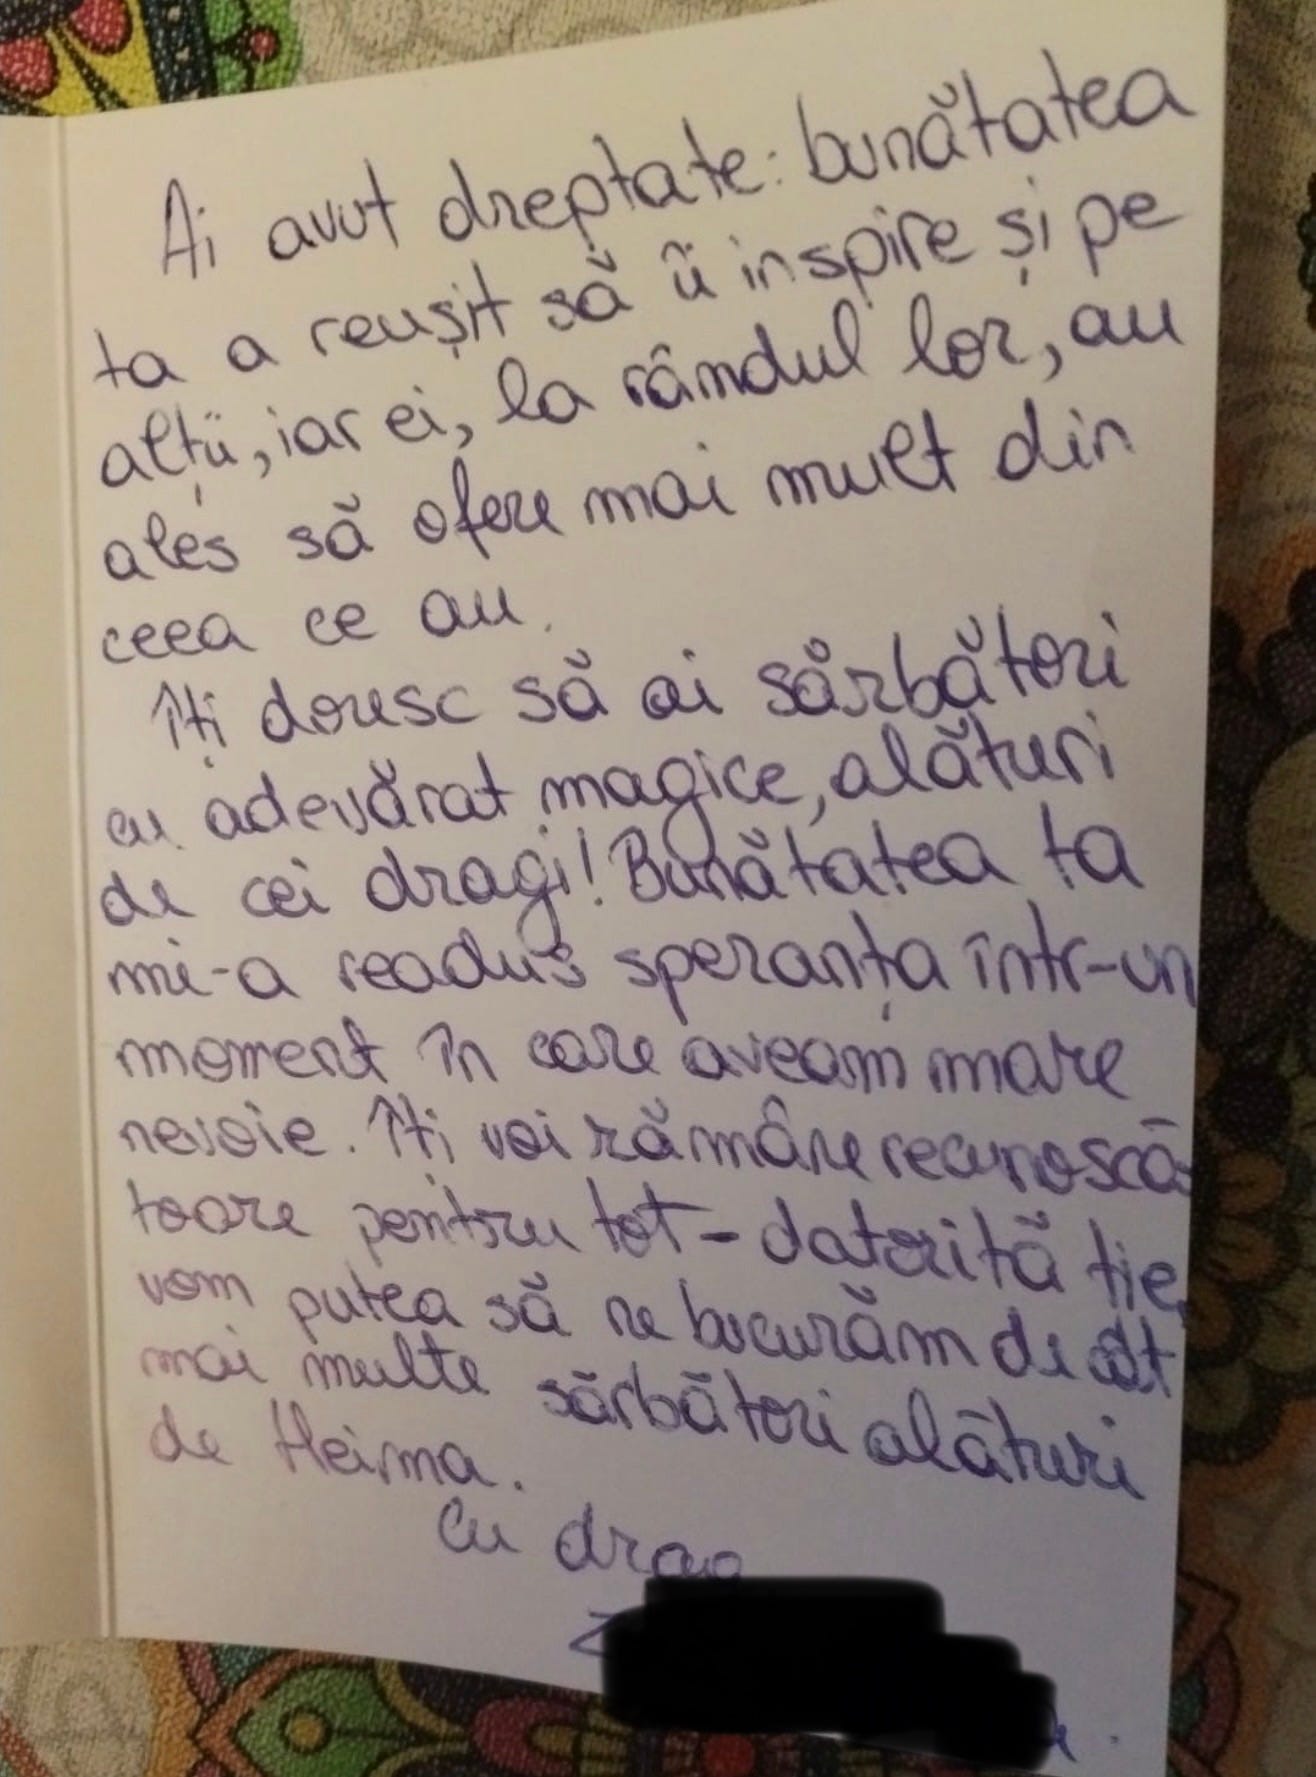 Ai avut dreptate: bunătatea
ta a reușit să îi inspire și pe
alții, iar ei, la rândul lor, au
ales să ofere mai mult din
ceea ce au.
Îți doresc să ai sărbători
cu adevărat magice, alături
de cei dragi! Bunătatea ta
mi-a readus speranța într-un
moment în care aveam mare
nevoie. Îți voi rămâne recunoscă-
toare pentru tot - datorită ție,
vom putea să ne bucurăm de cât
mai multe sărbători alături
de Heima.
Cu drag